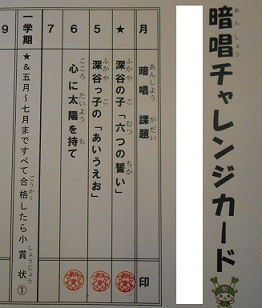 暗唱チャレンジカード
月 暗唱 課題 印
★ 深谷の子「六つの誓い」
5 深谷っ子の「あいうえお」
6 心に太陽を持て
7
一学期 ★&五月~七月まですべて合格したら小賞状①
9